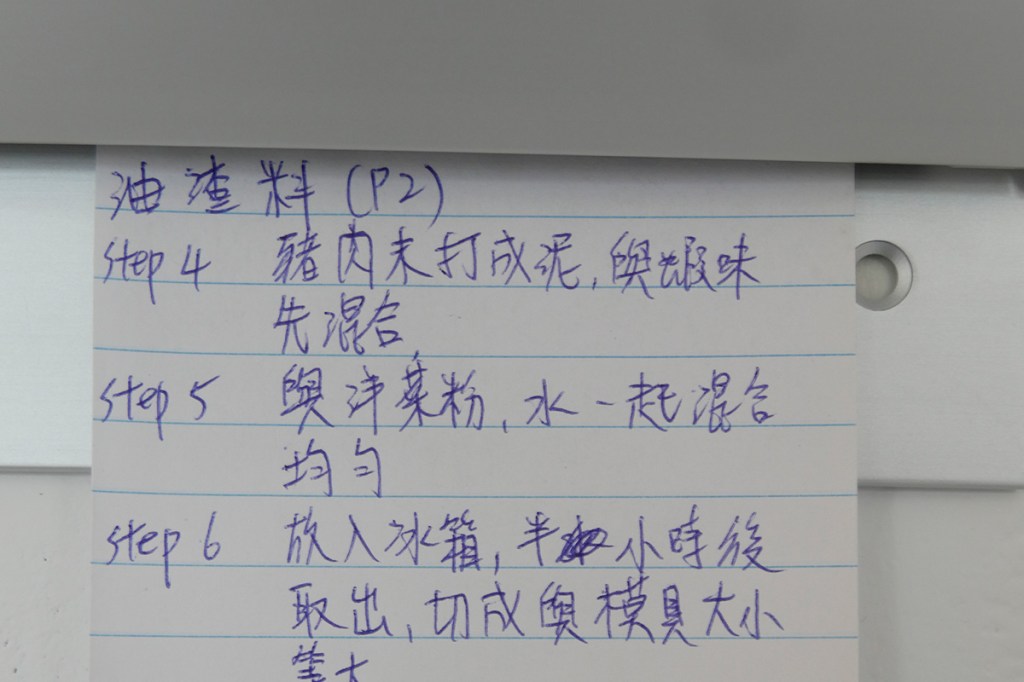 油渣料(P2)
step 4 豬肉末打成泥,與蝦味
先混合,
step 5 與洋菜粉,水一起混合
均勻
step 6 放入冰箱,半小時後
取出,切成與模具大小
等大